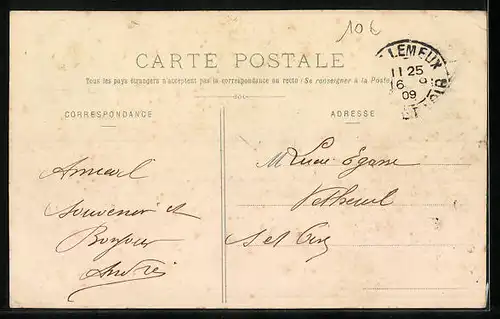 10€
CARTE POSTALE
Tous les pays étrangers n'acceptent pas la correspondance au recto (Se renseigner à la Poste)
CORRESPONDANCE
ADRESSE
LEMEUX
11 25
16
09
Amical
Souvenir et
Bonjour
André
M Lucu
Vetheuil
S et Oise